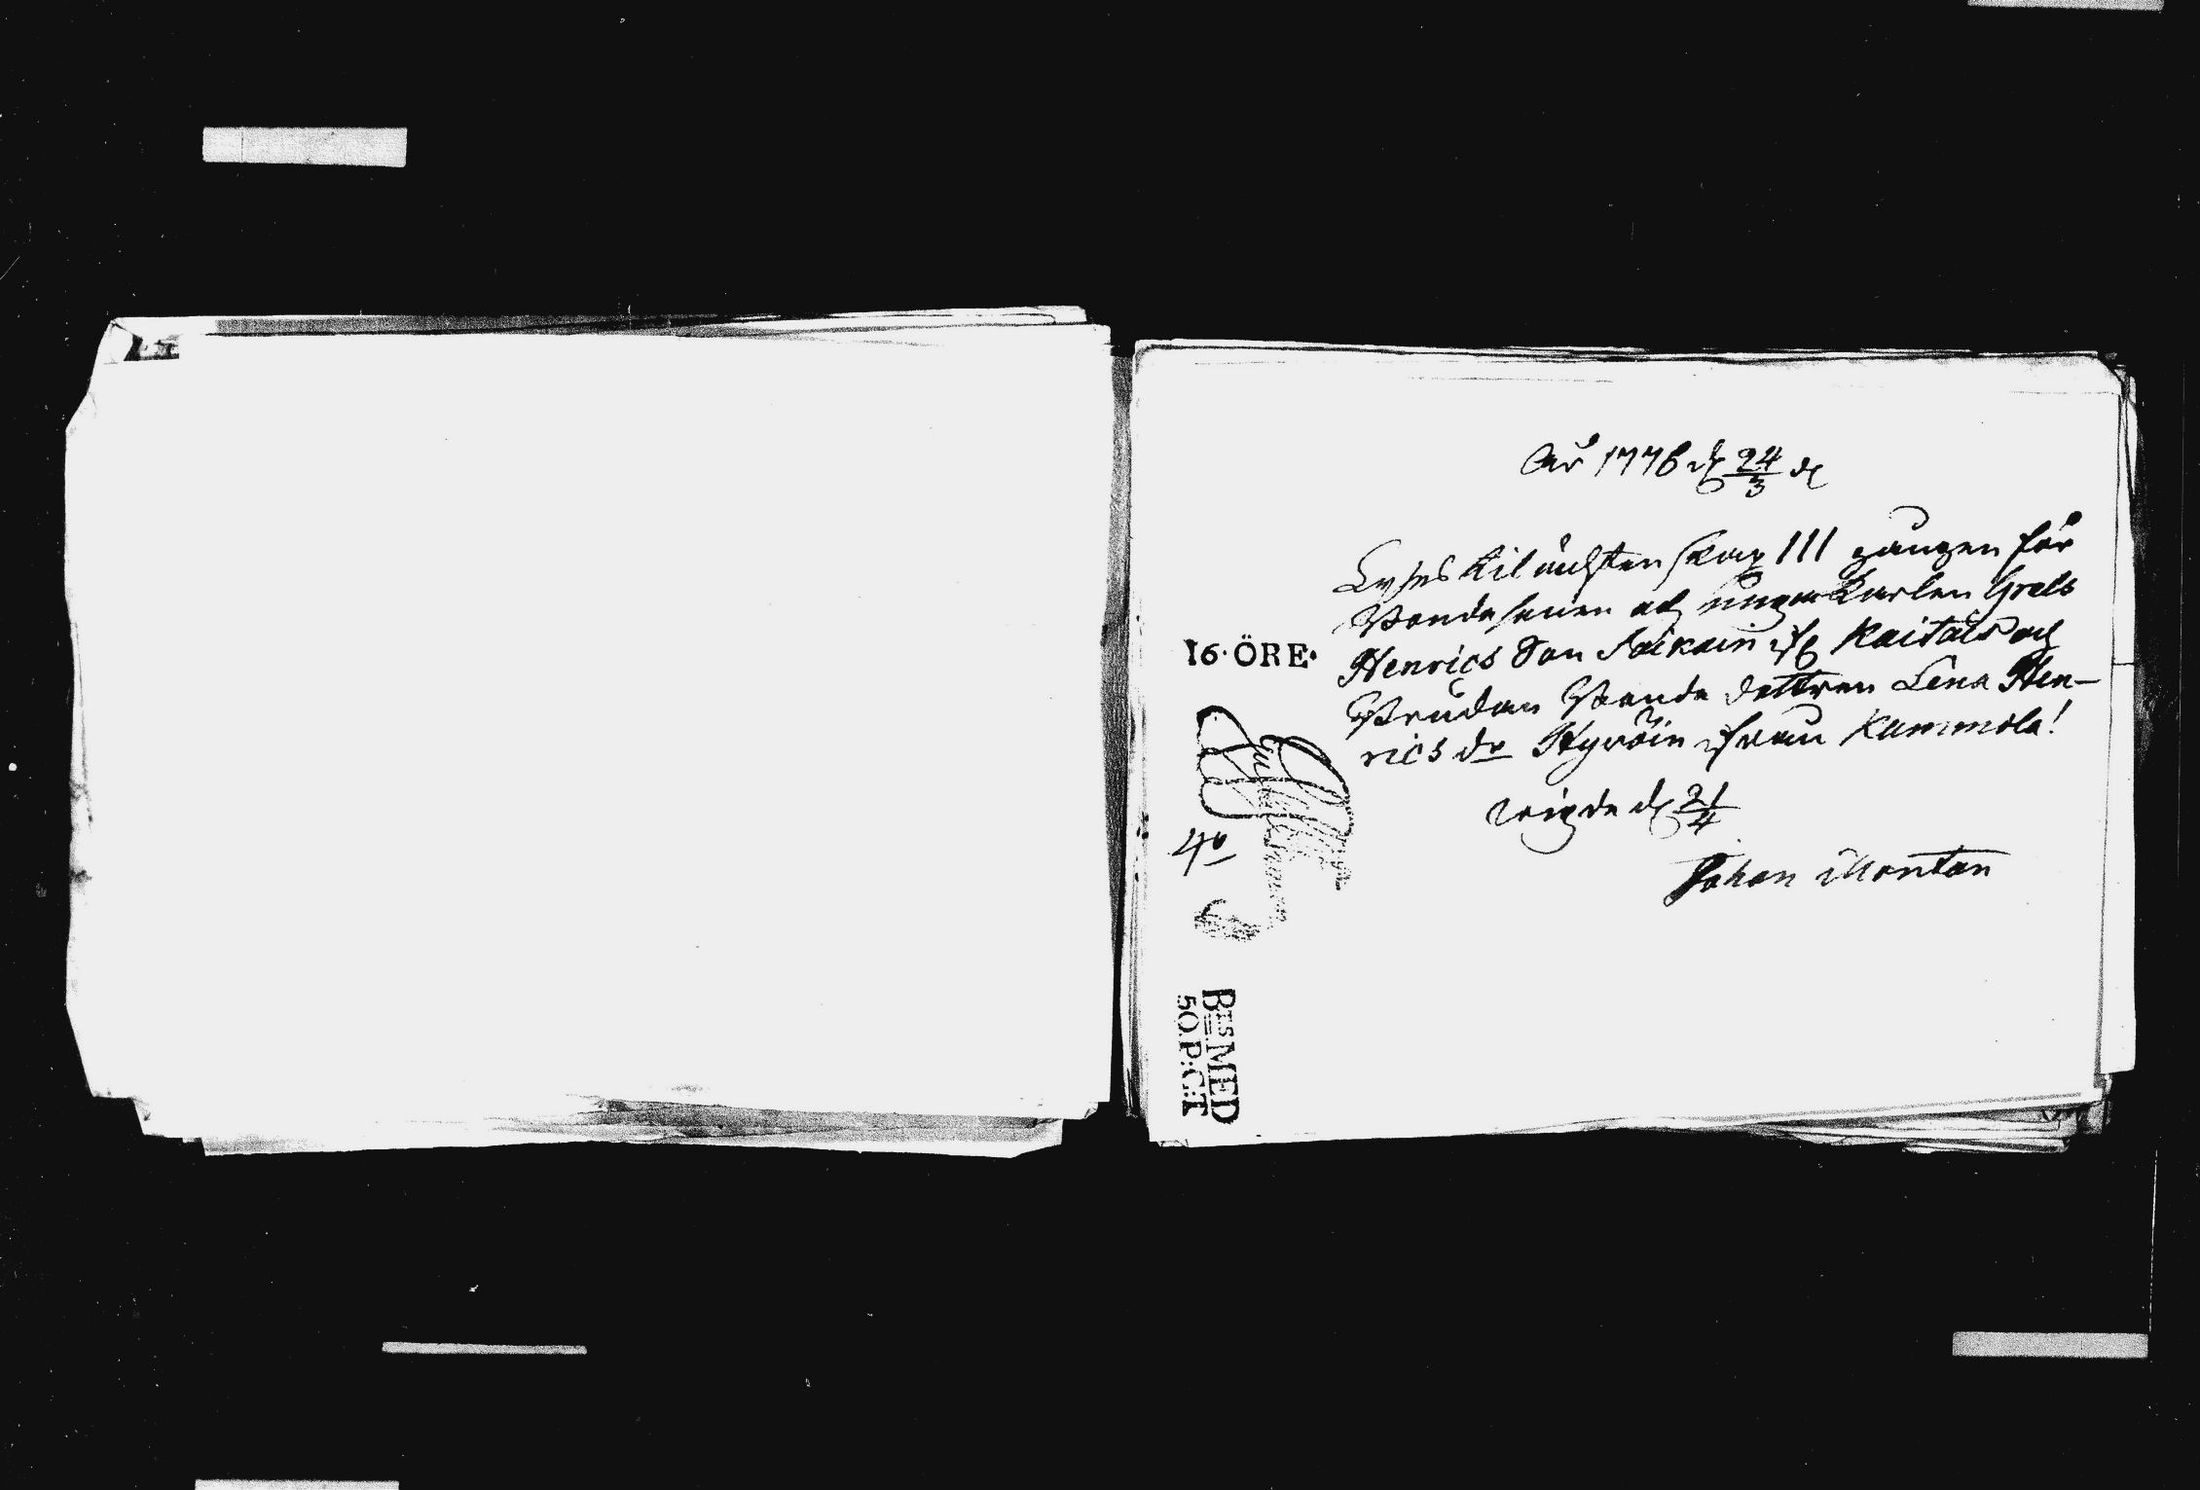 År 1776 d 24/3 
Lyses til ächtenskap III gången för
Bondesonen och unga Karlen Grels
Henrics Son Kaitais och
Brudan Bonde dottren Lena Hen-
rics dr Hyvöin ifrån Kammola!
wigde d 21/4
Johan Montan
16·ÖRE·
4º
BTES MED
50.P:C:T